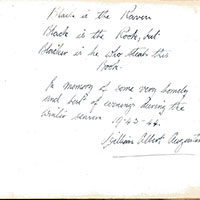 Black is the Raven
Black is the Rook, but
Blacker is he who steals this
Book.
In memory of some very homely
and of evenings during the
winter season 1943-44.
William Albert